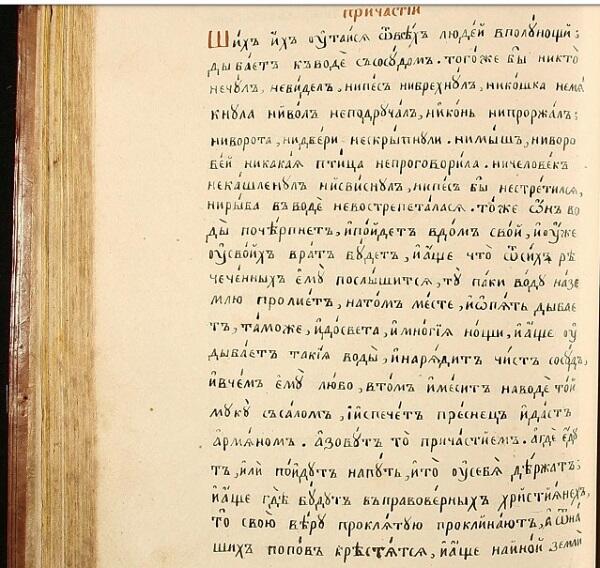 причастїи
Ши́хъ и́хъ ᲂу҆таи́сѧ ѿвсѣ́хъ люде́й вполу́нощи ;
ды́баетъ къводѣ̀ съсосу́домъ . того́же бы̀ никто̀
нечу́лъ , неви́делъ , нипе́съ нибрехну́лъ , нико́шка немѧ́
кнула ниво́лъ неподруча́лъ , нико́нь нипроржа́лъ ;
ниворота̀ , нидве́ри нескры́пнули . нимы́шъ , ниворо
бе́й никака́ѧ пти́ца непроговори́ла . ничелове́къ
нека́шленулъ нисви́снулъ , нипе́съ бы̀ нестре́тилсѧ ,
ниры́ба въводѣ̀ невострепета́ласѧ . то́же ѻ҆́нъ во
ды̀ поче́рпнетъ , и҆по́йдетъ вдо́мъ сво́й , и҆ᲂу҆́же
ᲂу҆свои́хъ вра́тъ бу́детъ , и҆а҆́ще что̀ ѿси́хъ рѣ
че́ченныхъ є҆мꙋ̀ послы́шитсѧ , тꙋ̀ па́ки во́дꙋ назе
млю пролие́тъ , нато́мъ месте , и҆ѡ҆пѧ́ть дыбае
тъ , та́може , и҆досве́та , и҆мно́гїѧ но́щи , и҆а҆́ще ᲂу҆
дыба́етъ такі́ѧ воды̀ , и҆нарѧди́тъ чи́стъ сосу́дъ ,
и҆вче́мъ є҆мꙋ̀ лю́бо , вто́мъ и҆меси́тъ наводѣ̀ то́й
мукꙋ̀ съса́ломъ , і҆испече́тъ пре́снецъ и҆да́стъ
а҆рмѧ́номъ . а҆зову́тъ то̀ прича́стїемъ . а҆гдѐ є҆дꙋ
тъ , и҆лѝ по́йдутъ напу́ть , и҆то̀ ᲂу҆себѧ̀ де́ржатъ ;
и҆а҆́ще гдѐ бу́дутъ въправове́рныхъ хрїстиѧ́нехъ ,
то̀ свою̀ ве́рꙋ проклѧ́тую проклина́ютъ , а҆ ѿна́
шихъ попо́въ крестѧ́тсѧ , и҆а҆́ще наи́ной землѝ